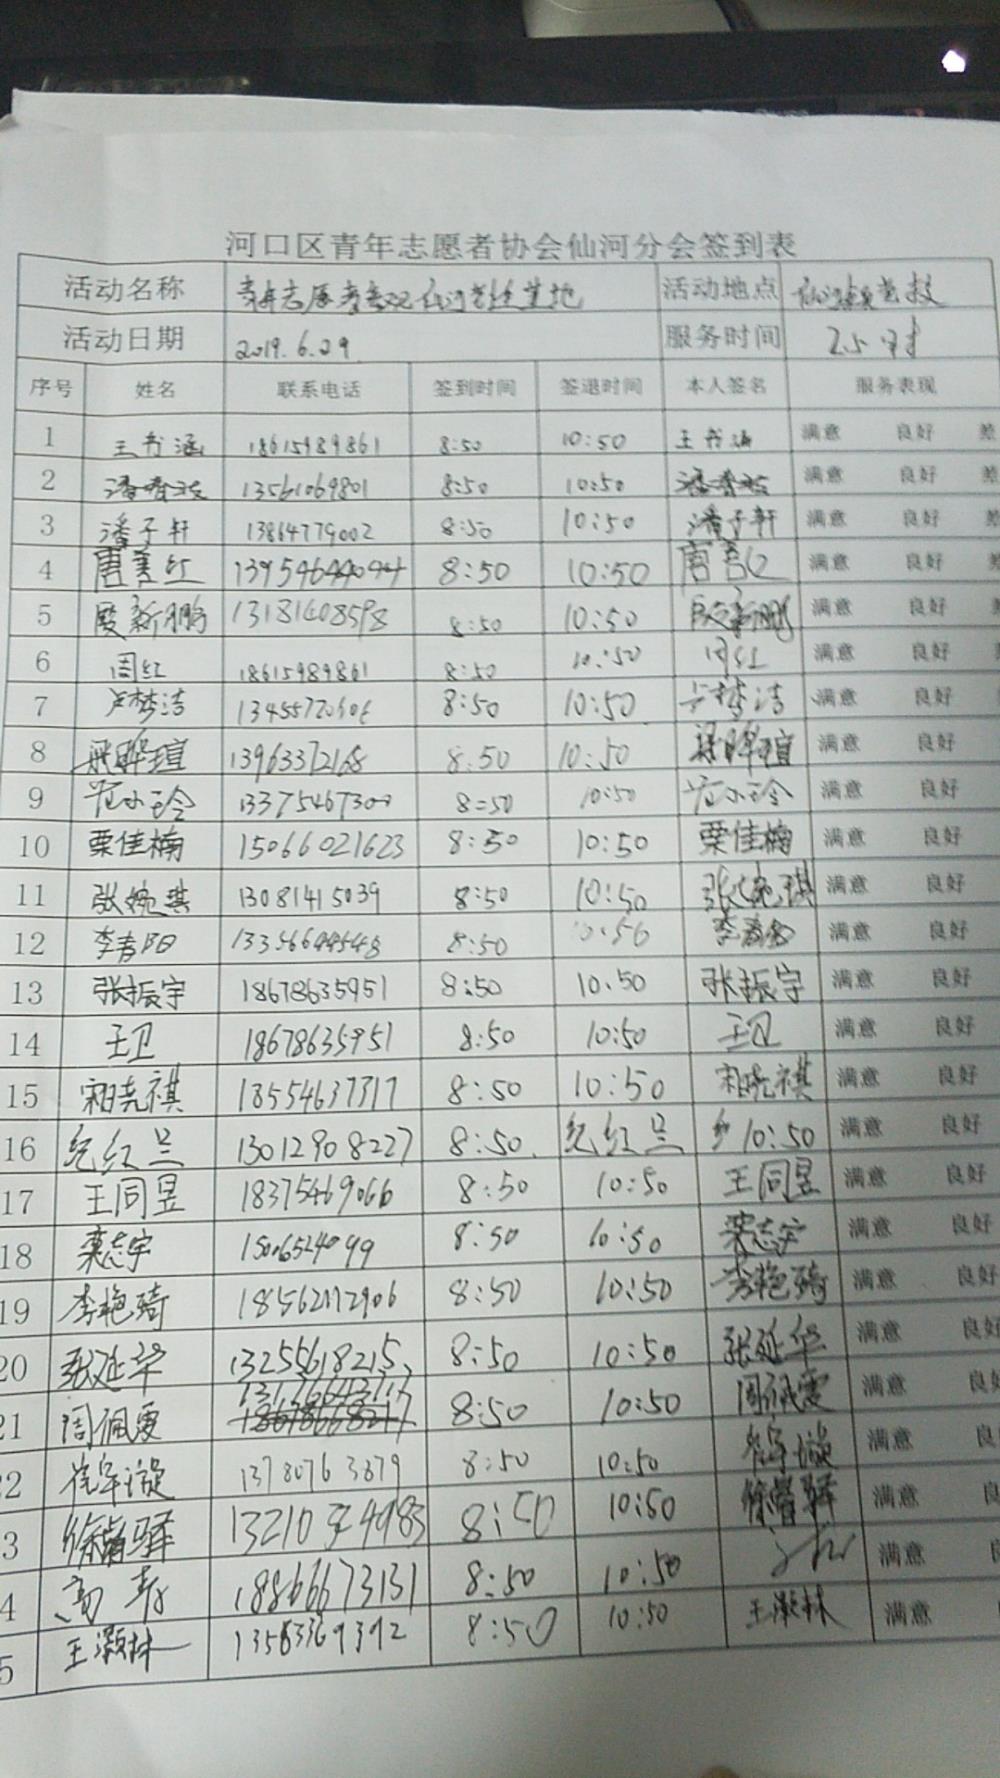 河口区青年志愿者协会仙河分会签到表
活动名称 青年志愿者参观仙河党建基地 活动地点 仙河镇党校
活动日期 2019.6.29 服务时间 2小时
序号 姓名 联系电话 签到时间 签退时间 本人签名 服务表现
1 王书涵 18615989861 8:50 10:50 王书涵 满意 良好 差
2 潘 13561069801 8:50 10:50 潘 满意 良好 差
3 潘子轩 13864779002 8:50 10:50 潘子轩 满意 良好 差
4 唐美红 13954644044 8:50 10:50 唐 满意 良好 差
5 殷新鹏 13181408598 8:50 10:50 殷新鹏 满意 良好 差
6 周红 18615989861 8:50 10:50 周红 满意 良好
7 卢梦洁 13455720606 8:50 10:50 卢梦洁 满意 良好
8 晔瑄 13963372168 8:50 10:50 晔瑄 满意 良好
9 范小玲 13375467300 8:50 10:50 范小玲 满意 良好
10 栗佳楠 15066021623 8:50 10:50 栗佳楠 满意 良好
11 张婉琪 13081415039 8:50 10:50 张婉琪 满意 良好
12 李春阳 13356644548 8:50 10:50 李春阳 满意 良好
13 张振宇 18678635951 8:50 10:50 张振宇 满意 良好
14 王卫 18678635951 8:50 10:50 王卫 满意 良好
15 宋晓祺 18554637317 8:50 10:50 宋晓祺 满意 良好
16 纪红兰 13012908227 8:50 纪红兰 10:50 满意 良好
17 王同昱 18375469066 8:50 10:50 王同昱 满意 良好
18 栾志宇 1506524099 8:50 10:50 栾志宇 满意 良好
19 李艳琦 18562172906 8:50 10:50 李艳琦 满意 良好
20 张延华 13255618215 8:50 10:50 张延华 满意 良好
21 周佩雯 8:50 10:50 周佩雯 满意 良好
2 璇 13780763879 8:50 10:50 璇 满意 良
3 徐睿驿 13210 8:50 10:50 徐睿驿 满意 良
4 高 18866673131 8:50 10:50 满意 良
5 王灏林 13563369392 8:50 10:50 王灏林 满意